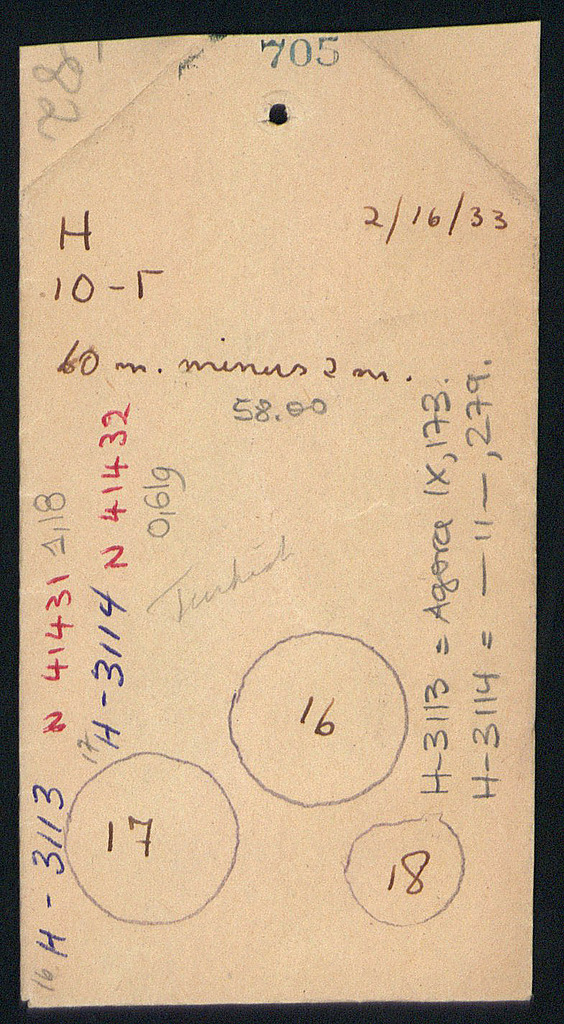 705
28
2/16/33
H
10-Γ
60 m. minus 2 m.
58.00
N 41432
0,61g
17 H-3114
N 41431 2,18
16 H-3113
H-3113 = Agora IX, 173.
H-3114 = — 11 —, 279.
Turkish
16
17
18